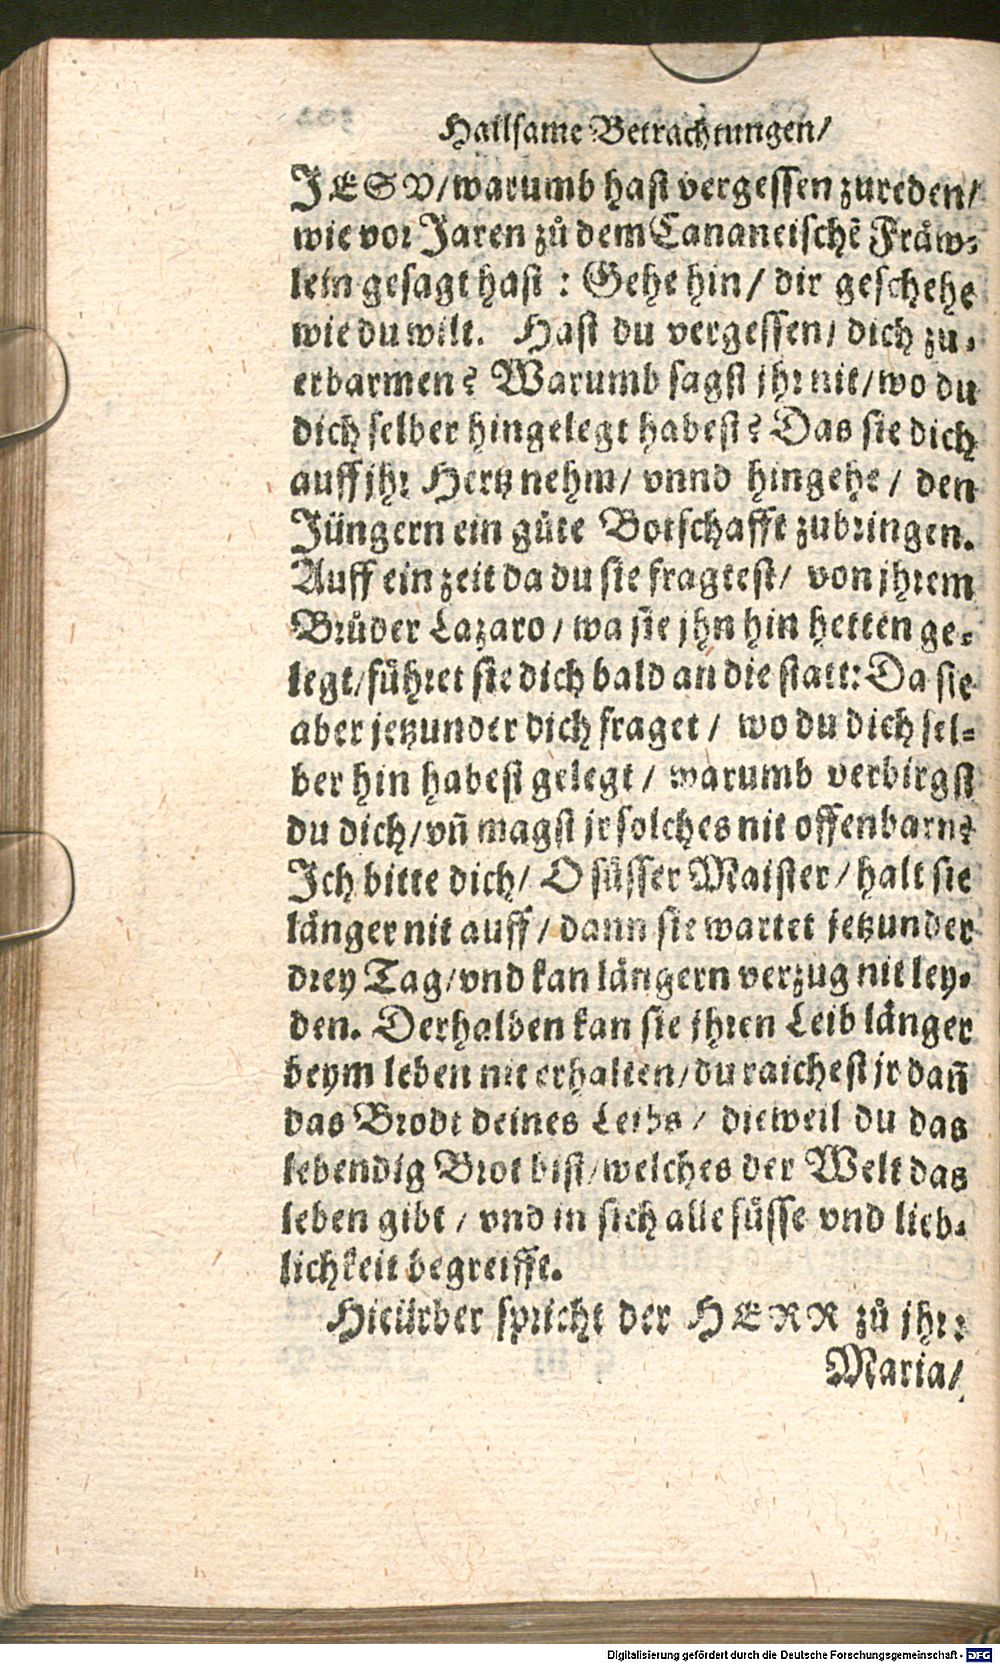 Hailsame Betrachtungen/
JESV/warumb hast vergessen zureden/
wie vor Jaren zů dem Cananeischē Fräw-
lein gesagt hast : Gehe hin/ dir geschehe
wie du wilt. Hast du vergessen/ dich zu-
erbarmen? Warumb sagst jhr nit/wo du
dich selber hingelegt habest? Das sie dich
auff jhr Hertz nehm/ vnnd hingehe/ den
Jüngern ein gůte Botschafft zubringen.
Auff ein zeit da du sie fragtest/ von jhrem
Brůder Lazaro/ wa sie jhn hin hetten ge-
legt/führet sie dich bald an die statt: Da sie
aber jetzunder dich fraget/ wo du dich sel-
ber hin habest gelegt/ warumb verbirgst
du dich/vñ magst jr solches nit offenbarn?
Ich bitte dich/ O süsser Maister/ halt sie
länger nit auff/ dann sie wartet jetzunder
drey Tag/vnd kan längern verzug nit ley-
den. Derhalben kan sie jhren Leib länger
beym leben nit erhalten/du raichest jr dañ
das Brodt deines Leibs/ dieweil du das
lebendig Brot bist/welches der Welt das
leben gibt/ vnd in sich alle süsse vnd lieb-
lichkeit begreifft.
Hieürber spricht der HERR zů jhr:
Maria/
Digitalisierung gefördert durch die Deutsche Forschungsgemeinschaft - DFG